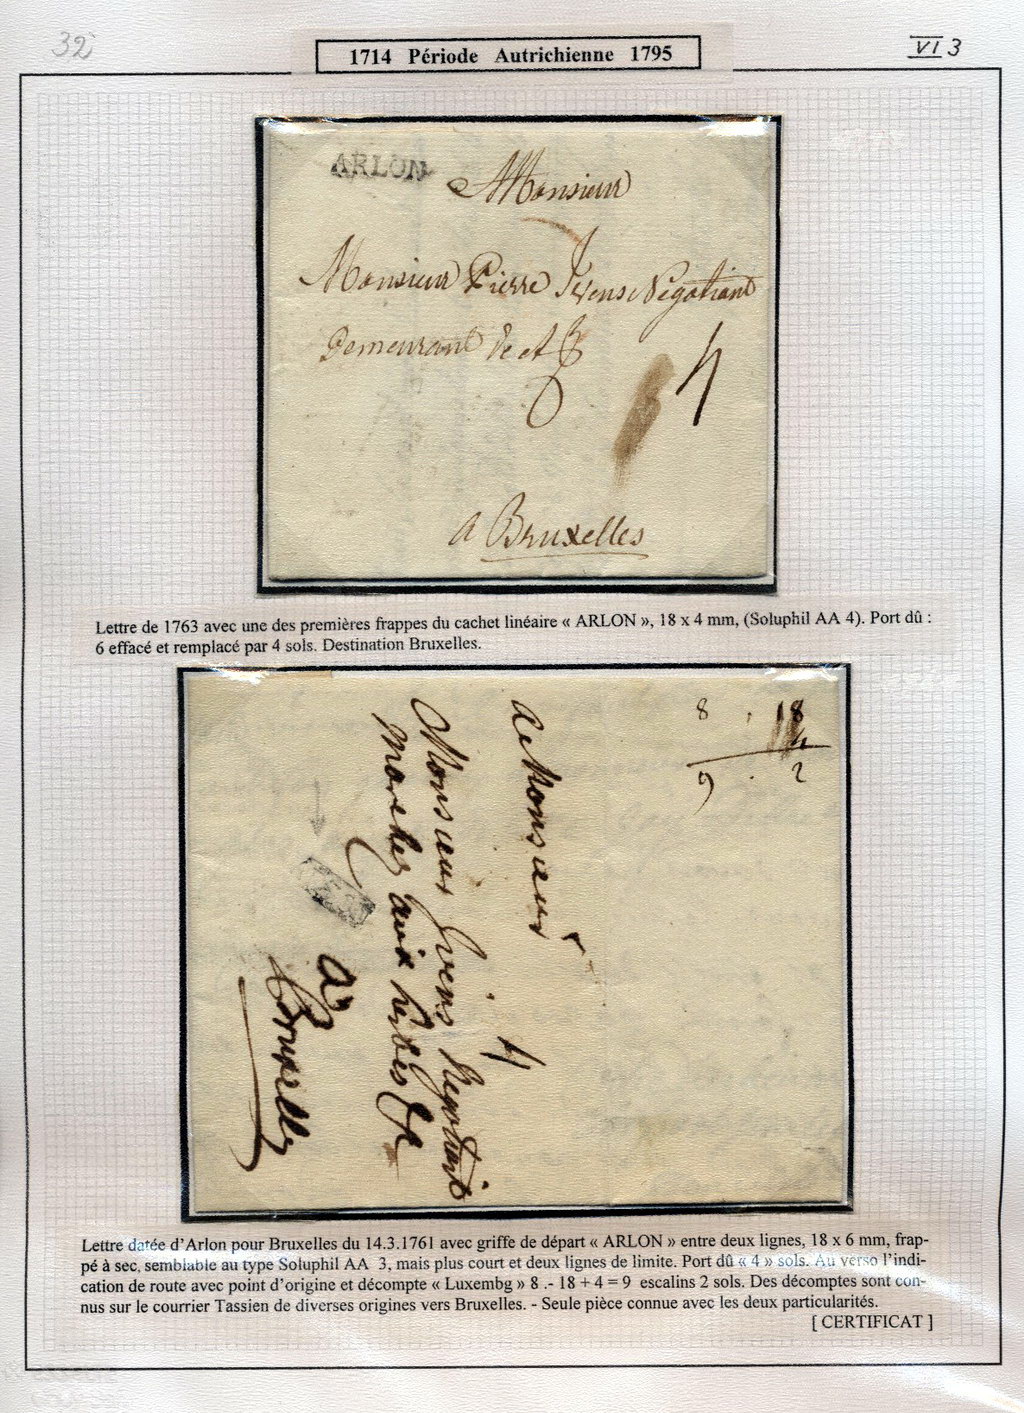 32
VI 3
1714 Période Autrichienne 1795
ARLON
Monsieur
Monsieur Pierre Ivens Négotiant
Demeurant &c et &
4
a Bruxelles
Lettre de 1763 avec une des premières frappes du cachet linéaire « ARLON », 18 x 4 mm, (Soluphil AA 4). Port dû :
6 effacé et remplacé par 4 sols. Destination Bruxelles.
8 . 18
4
9 . 2
a Monsieur
Monsieur Ivens Negotiant
Marchez aux herbes
4
a
Bruxelles
Lettre datée d’Arlon pour Bruxelles du 14.3.1761 avec griffe de départ « ARLON » entre deux lignes, 18 x 6 mm, frap-
pé à sec, semblable au type Soluphil AA 3, mais plus court et deux lignes de limite. Port dû « 4 » sols. Au verso l’indi-
cation de route avec point d’origine et décompte « Luxembg » 8 .- 18 + 4 = 9 escalins 2 sols. Des décomptes sont con-
nus sur le courrier Tassien de diverses origines vers Bruxelles. - Seule pièce connue avec les deux particularités.
[ CERTIFICAT ]